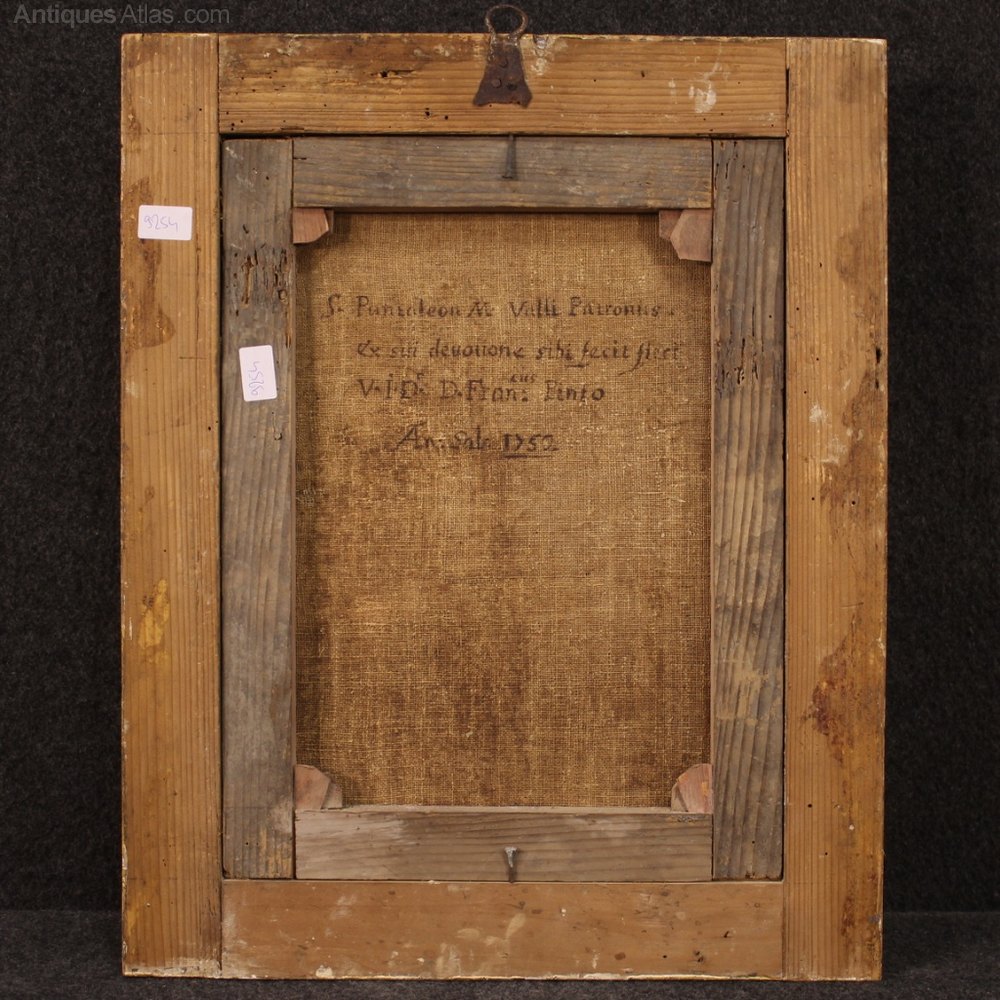 AntiquesAtlas.com
9254
9254
S. Pantaleon M. Valli Patronus.
ex sui deuotione sibi fecit fieri
V.I.Dr. D. Fran.cus Pinto
An. Sal. 1752